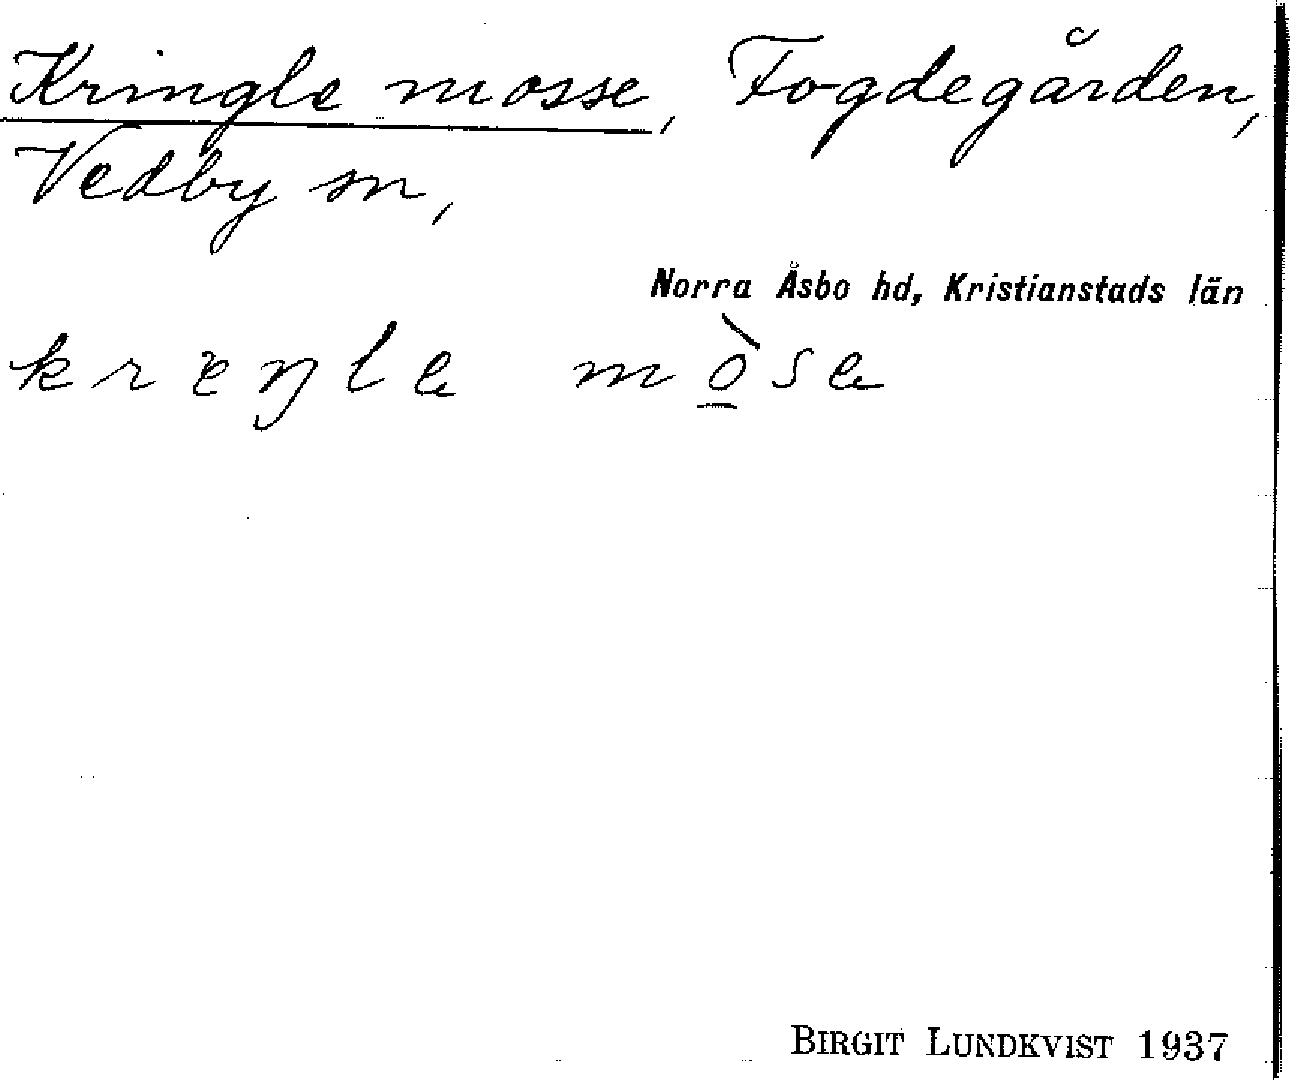 Kringle mosse, Fogdegården,
Vedby sn,
Norra Åsbo hd, Kristianstads län
kreŋle mò̠se
BIRGIT LUNDKVIST 1937